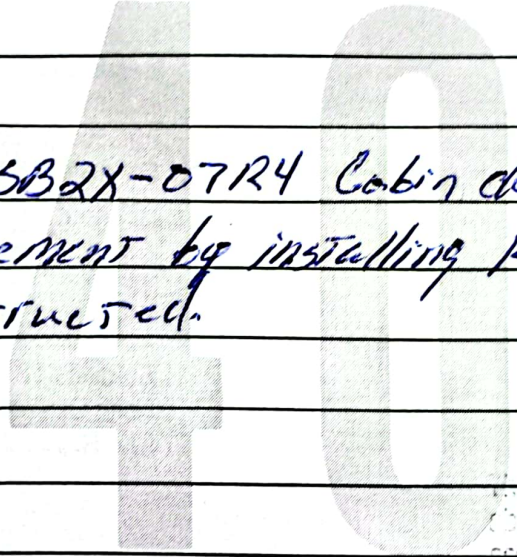 SB2X-07R4 Cabin d
ement by installing
ructed.
40